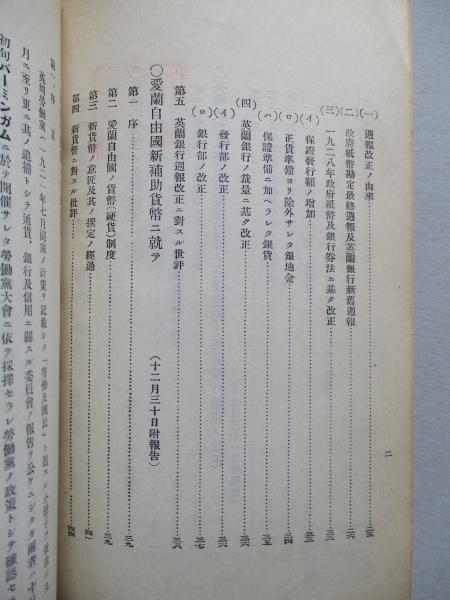 (一) 週報改正ノ由來……二五
(二) 政府紙幣勘定最終週報及英蘭銀行新舊週報……二六
(三) 一九二八年政府紙幣及銀行券法ニ基ク改正……三三
(イ) 保證發行額ノ增加……三三
(ロ) 正貨準備ヨリ除外サレタ銀地金……三四
(ハ) 保證準備ニ加ヘラレタ銀貨……三五
(四) 英蘭銀行ノ裁量ニ基ク改正……三六
(イ) 發行部ノ改正……三六
(ロ) 銀行部ノ改正……三七
第五 英蘭銀行週報改正ニ對スル世評……三八
〇愛蘭自由國新補助貨幣ニ就テ (十二月三十日附報告)
第一 序……三九
第二 愛蘭自由國ノ貨幣(硬貨)制度……三九
第三 新貨幣ノ意匠及其ノ撰定ノ經過……四一
第四 新貨幣ニ對スル批評……四四
二
英國勞働黨ハ一九二一年七月同黨ノ政策ヲ記載シタ「勞働及國民」ト題スル
月ニ至リ更ニ其ノ追補トシテ通貨、銀行及信用ニ關スル委員會ノ報告ヲ公ケニシタガ兩者ハ十月
初旬バーミンガムニ於テ開催サレタ勞働黨大會ニ依テ採擇セラレ勞働黨ノ政策トシテ確認セラ